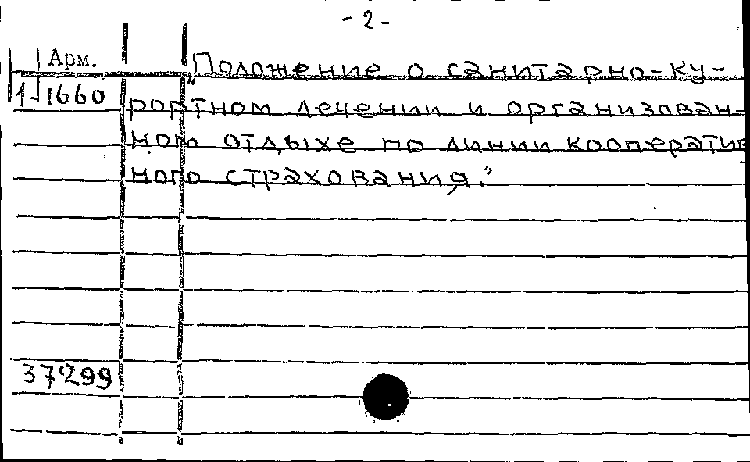 - 2 -
Арм.
"Положение о санитарно-ку-
1-1660
рортном лечении и организован-
ном отдыхе по линии кооператив
ного страхования."
37299